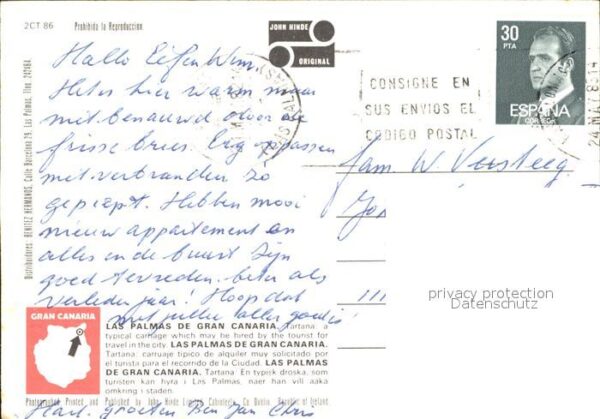 2CT 86
Prohibida la Reproduccion
JOHN HINDE
ORIGINAL
30
PTA
ESPAÑA
CORREOS
CONSIGNE EN
SUS ENVIOS EL
CODIGO POSTAL
24 MAY 83 14
Distribuidores: BENITEZ HERMANOS, Calle Barcelona 29, Las Palmas, Tfno. 247664
Hallo Eef en Wim,
Het is hier warm maar
niet benauwd door de
frisse bries. Erg oppassen
met verbranden zo
gepiept. Hebben mooi
nieuw appartement en
alles in de buurt. Zijn
goed tevreden. beter als
verleden jaar! Hoop dat
met jullie alles goed is!
Hart. groeten Ben Jan Chris
Fam. W. Versteeg
privacy protection
Datenschutz
GRAN CANARIA
LAS PALMAS DE GRAN CANARIA. Tartana: a
typical carriage which may be hired by the tourist for
travel in the city. LAS PALMAS DE GRAN CANARIA.
Tartana: carruaje típico de alquiler muy solicitado por
el turista para el recorrido de la Ciudad. LAS PALMAS
DE GRAN CANARIA. Tartana: En typisk droska, som
turisten kan hyra i Las Palmas, naer han vill aaka
omkring i staden.
Photographed, Printed and Published by John Hinde Limited, Cabinteely, Co Dublin, Republic of Ireland.